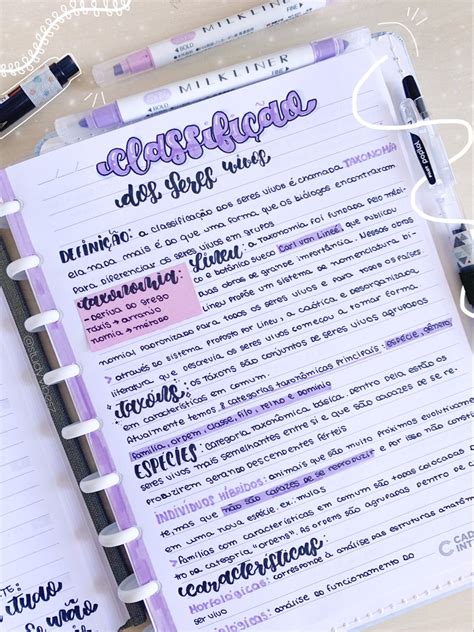 MILKLINER
BOLD
FINE
MILKLINER
BOLD
FINE
classificação
dos seres vivos
DEFINIÇÃO: a classificação dos seres vivos é chamada TAXONOMIA
ela nada mais é do que uma forma que os biólogos encontraram
para diferenciar os seres vivos em grupos
taxonomia:
- Deriva do grego
táxis = arranjo
nomia = método
Lineu: a taxonomia foi fundada pelo
e botânico sueco Carl von Lineé, que publicou
obras de grande importância. Nessas obras
Lineu propõe um sistema de nomenclatura bi-
nomial padronizado para todos os seres vivos e para todos os países
> através do sistema proposto por Lineu, a caótica e desorganizada
literatura que descrevia os seres vivos começou a tomar forma
táxons: os táxons são conjuntos de seres vivos agrupados
em características em comum.
Atualmente temos 8 categorias taxonômicas principais: espécie, gênero,
família, ordem, classe, filo, reino e domínio
ESPÉCIES: categoria taxonômica básica. dentro dela estão os
seres vivos mais semelhantes entre si e que são capazes de se re-
produzirem gerando descendentes férteis
INDIVÍDUOS HÍBRIDOS: animais que são muito próximos evolutivamen-
te, mas que não são capazes de se reproduzir e por isso não
em uma nova espécie. ex.: mulas
> Famílias com características em comum são todas colocadas den-
tro da categoria "ordens". As ordens são agrupadas dentro de
características
Morfológicas: corresponde à análise das estruturas
Fisiológicas: análise do funcionamento do
ser vivo
CAD
INT